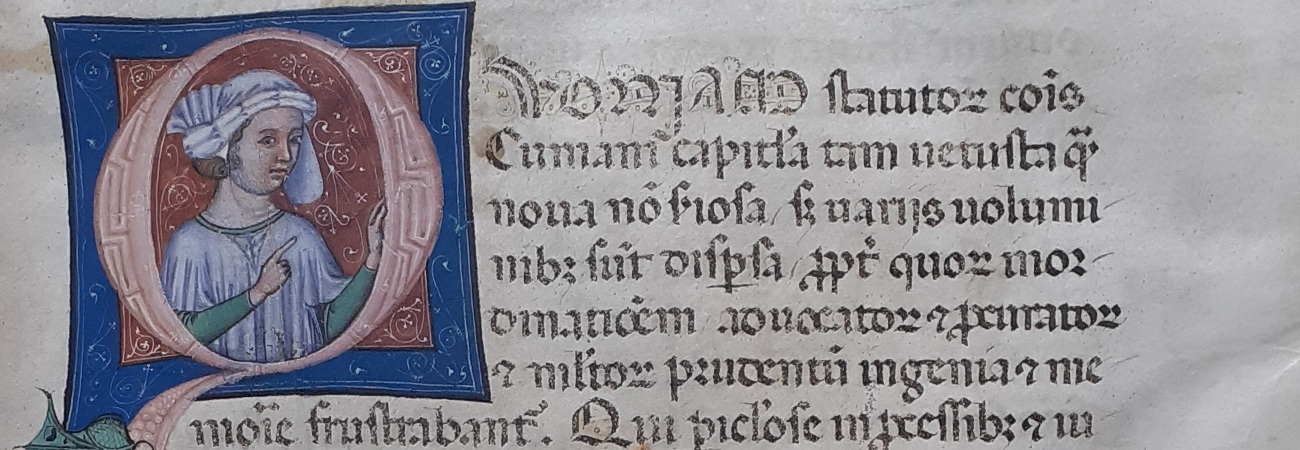 QVONIAM statutoꝝ cōīs
Cumani capitl'a tam uetusta qͣ̄
noua nō uiosa, sꝫ uarijs uolumi
nibꝫ sūt dispsa, ꝓpt' quoꝝ inor
dinatiōēm aduocatoꝝ ⁊ ꝓcuratoꝝ
⁊ multoꝝ prudentū ingenia ⁊ me
moīe frustrabant᷑. Qui piclose in ꝓcessibꝫ ⁊ iu